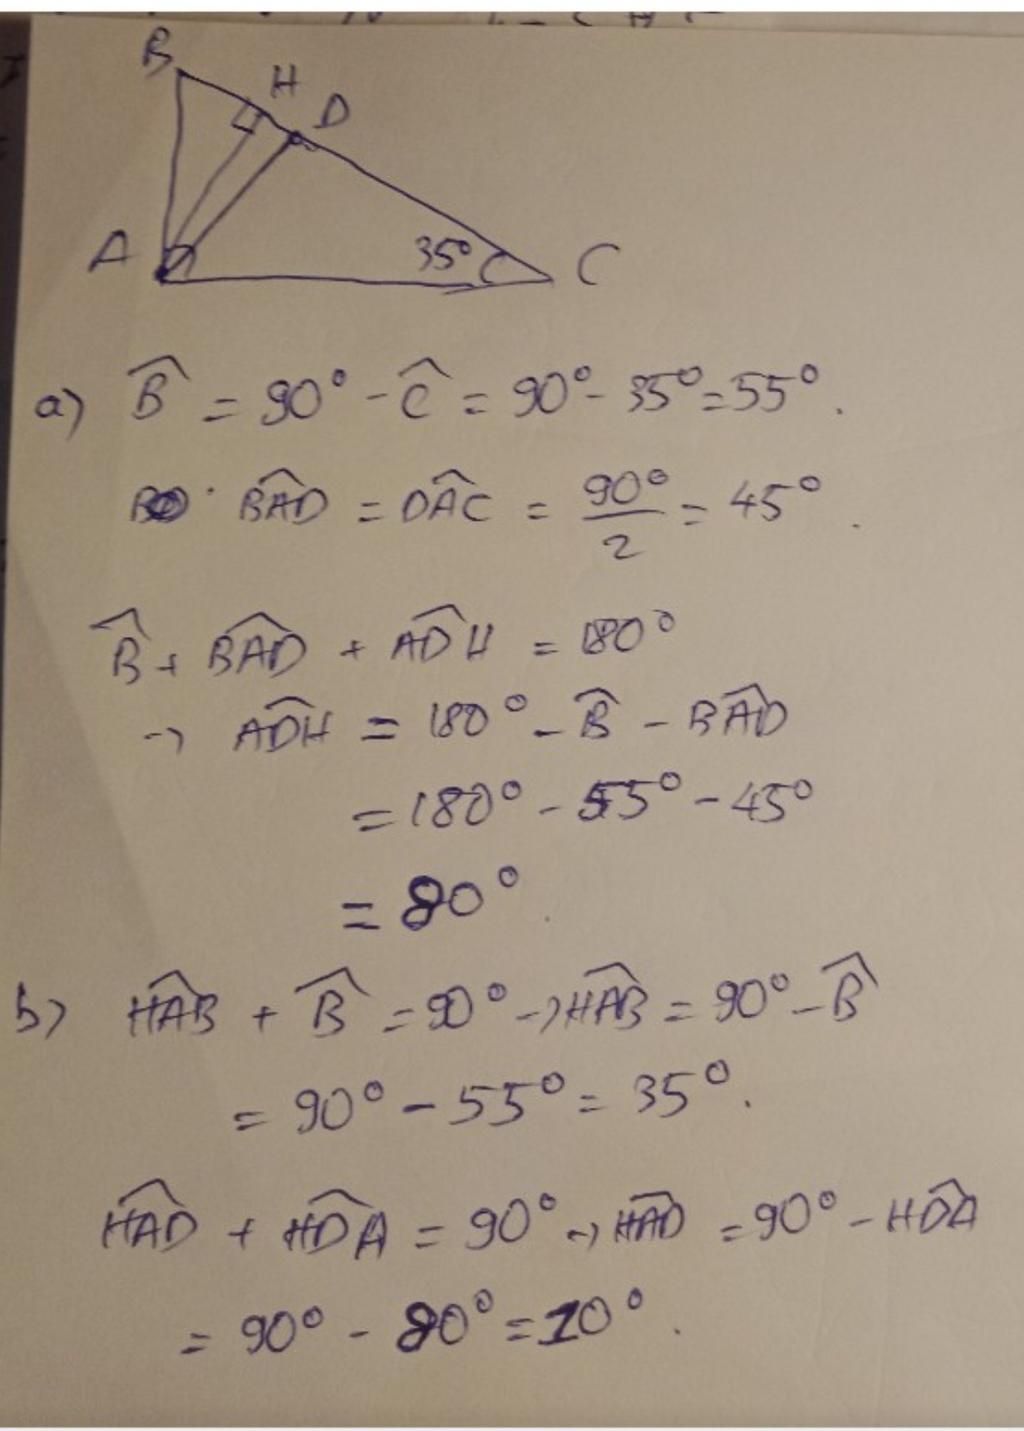 B
H
D
A
35°
C
a) B̂ = 90° - Ĉ = 90° - 35° = 55°.
BAD̂ = DAĈ = 90°/2 = 45°.
B̂ + BAD̂ + ADĤ = 180°
→ ADĤ = 180° - B̂ - BAD̂
= 180° - 55° - 45°
= 80°.
b) HAB̂ + B̂ = 90° → HAB̂ = 90° - B̂
= 90° - 55° = 35°.
HAD̂ + HDÂ = 90° → HAD̂ = 90° - HDÂ
= 90° - 80° = 10°.